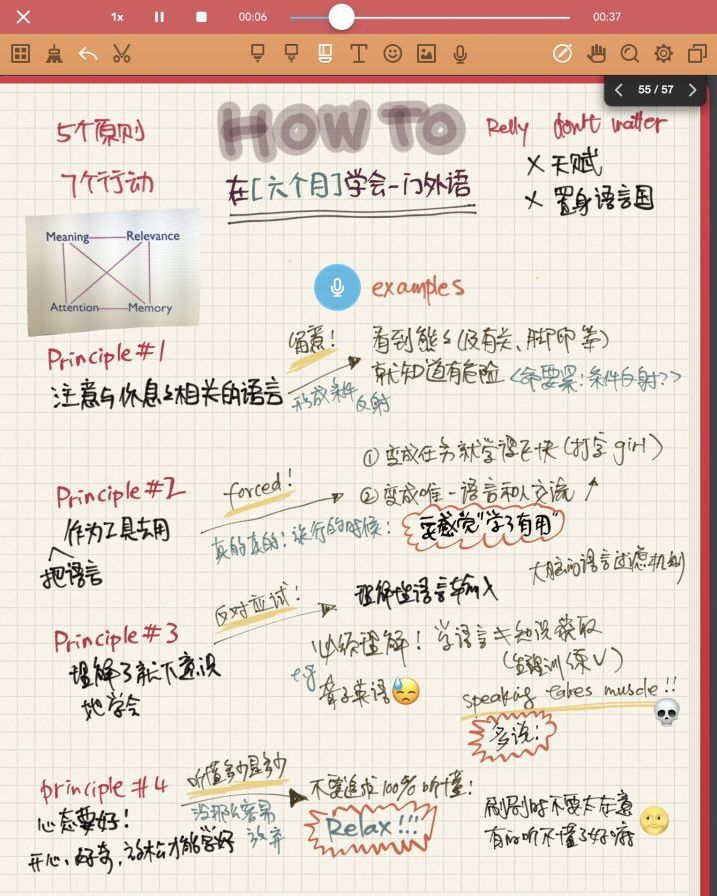 1x
00:06
00:37
55 / 57
5个原则
7个行动
HOW TO
在[六个月]学会一门外语
Relly don't matter
× 天赋
× 置身语言国
Meaning Relevance
Attention Memory
examples
Principle #1
注意与你息息相关的语言
留意！
形成条件反射
看到熊(没有关、脚印等)
就知道有危险
<命要紧：条件反射??>
Principle #2
把语言
作为工具去用
forced！
真的真的！旅行的时候：
① 变成任务就学得飞快(打字girl)
② 变成唯一语言和人交流
要感觉"学了有用"
大脑的语言过滤机制
Principle #3
理解了就不意识
地学会
反对应试！
理解性语言输入
必须理解！学语言≠知识获取
(生理训练√)
e.g
聋子英语
speaking takes muscle!!
多说！
principle #4
心态要好！
开心，好奇，放松才能学好
听懂多少是多少
没那么容易
放弃
不要追求100%听懂！
Relax!!!
刚刚时不要太在意
有的听不懂了好嘛